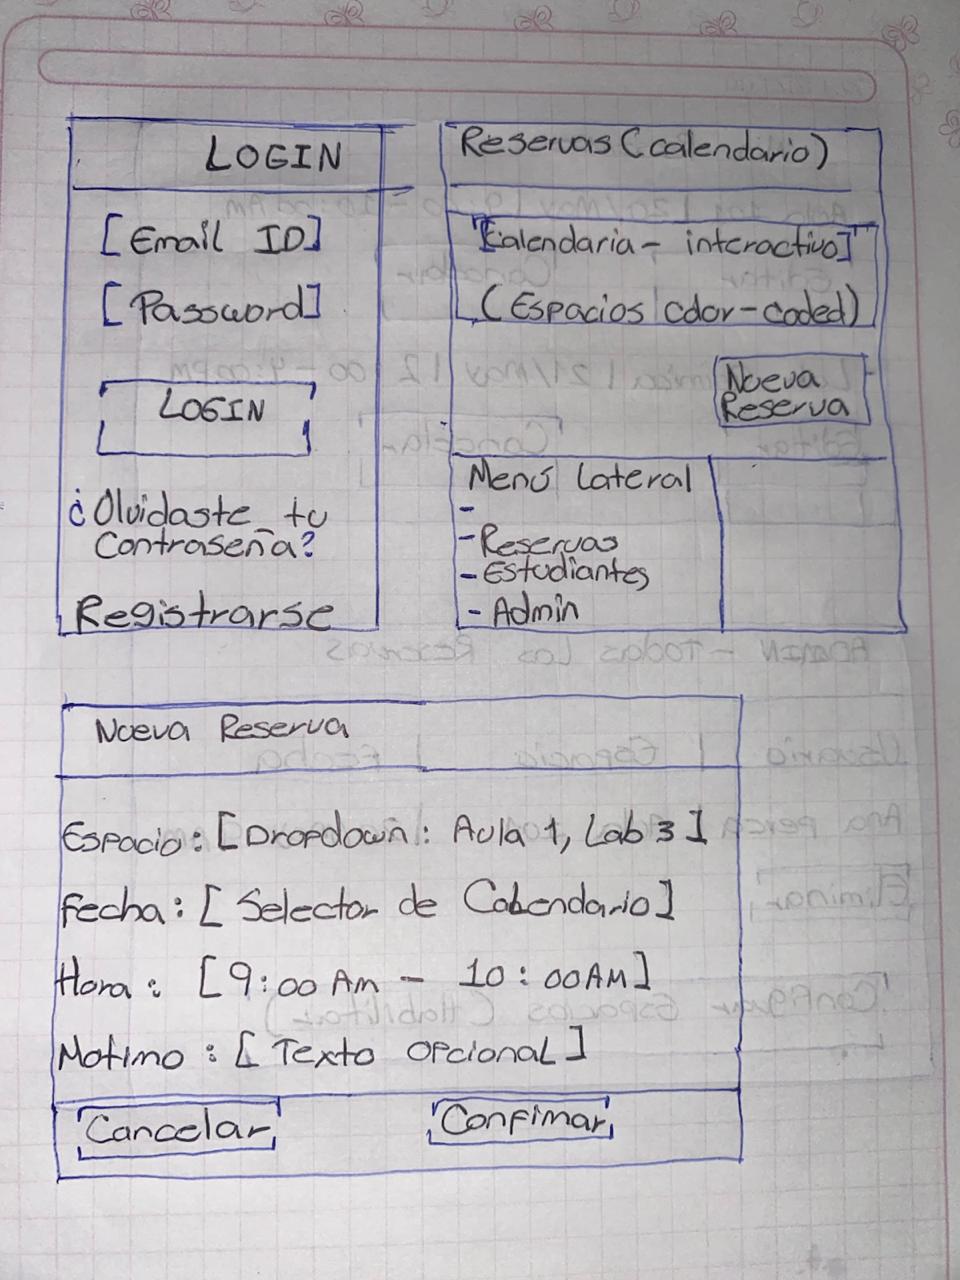 LOGIN
[Email ID]
[Password]
LOGIN
¿Olvidaste tu
Contraseña?
Registrarse
Reservas (calendario)
[Calendaria - interactivo]
(Espacios color-coded)
Nueva
Reserva
Menú Lateral
-
- Reservas
- Estudiantes
- Admin
Nueva Reserva
Espacio: [Dropdown: Aula 1, Lab 3]
Fecha: [Selector de Calendario]
Hora: [9:00 Am - 10:00 AM]
Motimo: [Texto opcional]
Cancelar
Confimar